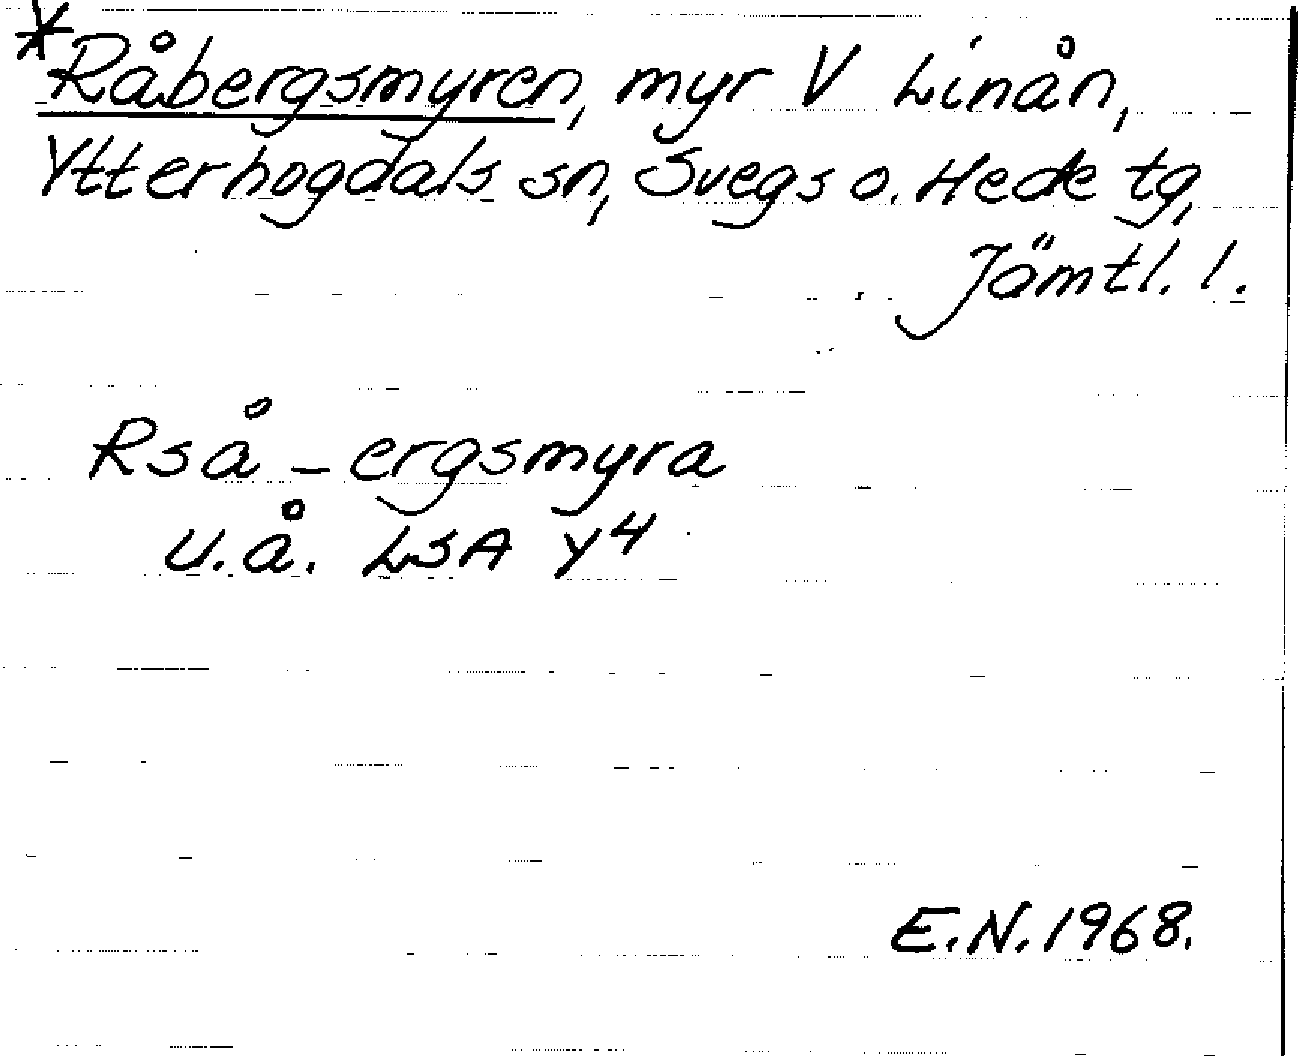 * Råbergsmyren, myr V Linån,
Ytterhogdals sn, Svegs o. Hede tg,
Jämtl. l.
Rså - ergsmyra
u.å. LSA Y4
E.N. 1968.